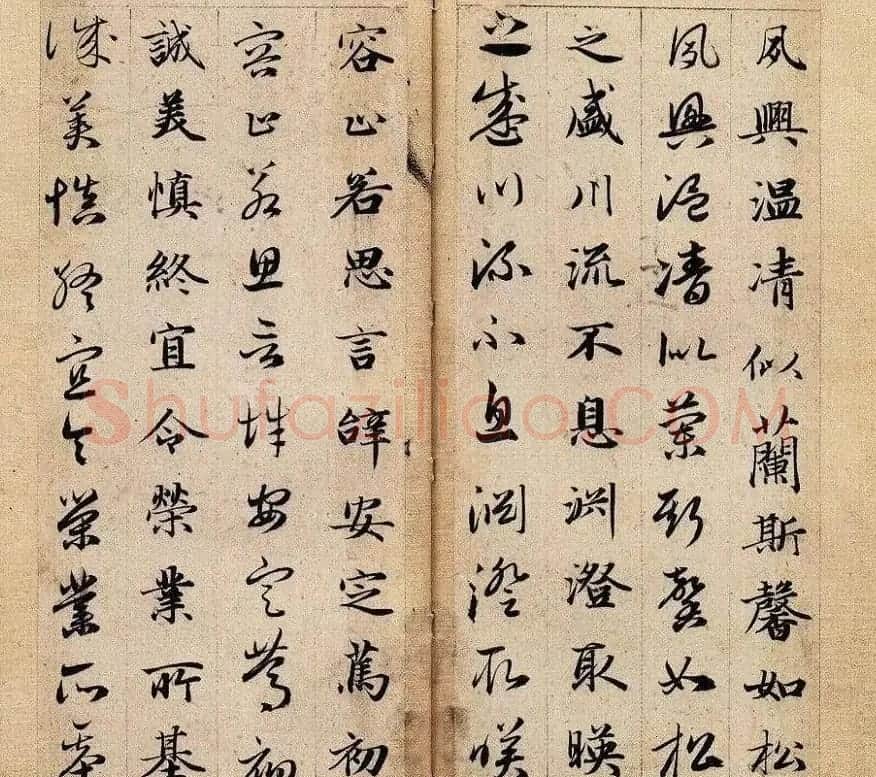 夙興温凊似蘭斯馨如松
夙興温凊似蘭斯馨如松
之盛川流不息渊澄取暎
之盛川流不息渊澄取暎
容止若思言辝安定篤初
容止若思言辝安定篤初
誠美慎終宜令榮業所基
誠美慎終宜令榮業所基
Shufaziliao.COM